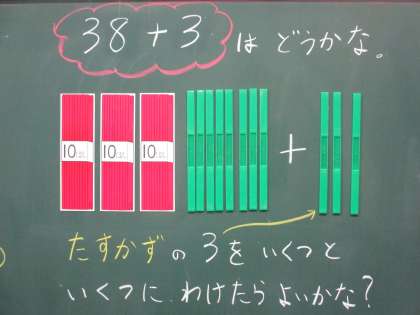 38+3 は どうかな。
10 10 10 +
たすかずの 3を いくつと
いくつに わけたら よいかな?